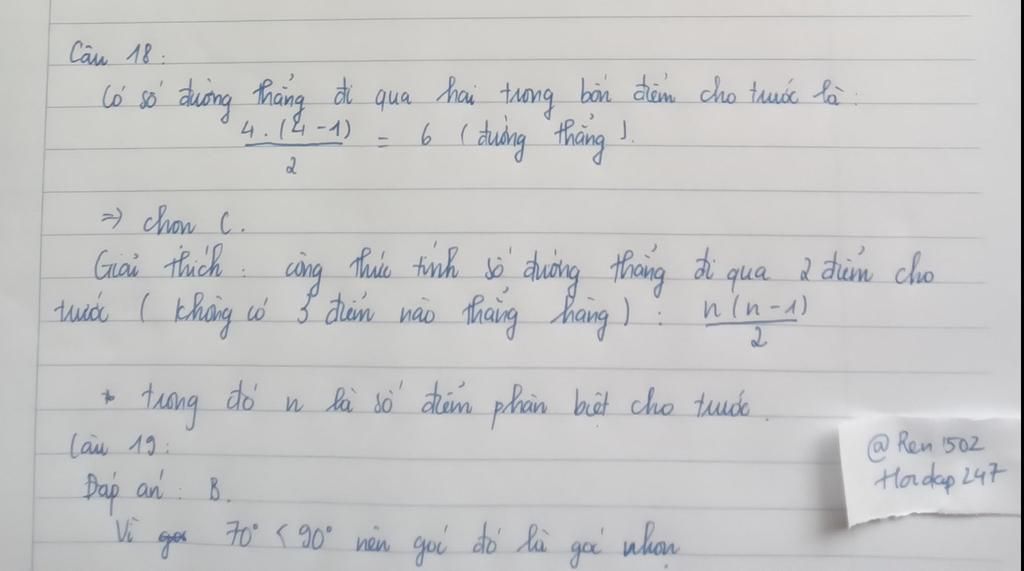 Câu 18:
Có số đường thẳng đi qua hai trong bốn điểm cho trước là:
4.(4-1)/2 = 6 (đường thẳng).
=> chọn C.
Giải thích: công thức tính số đường thẳng đi qua 2 điểm cho
trước (không có 3 điểm nào thẳng hàng): n(n-1)/2
* trong đó n là số điểm phân biệt cho trước.
Câu 19:
Đáp án: B.
Vì 70° < 90° nên góc đó là góc nhọn
@Ren1502
Hoidap247